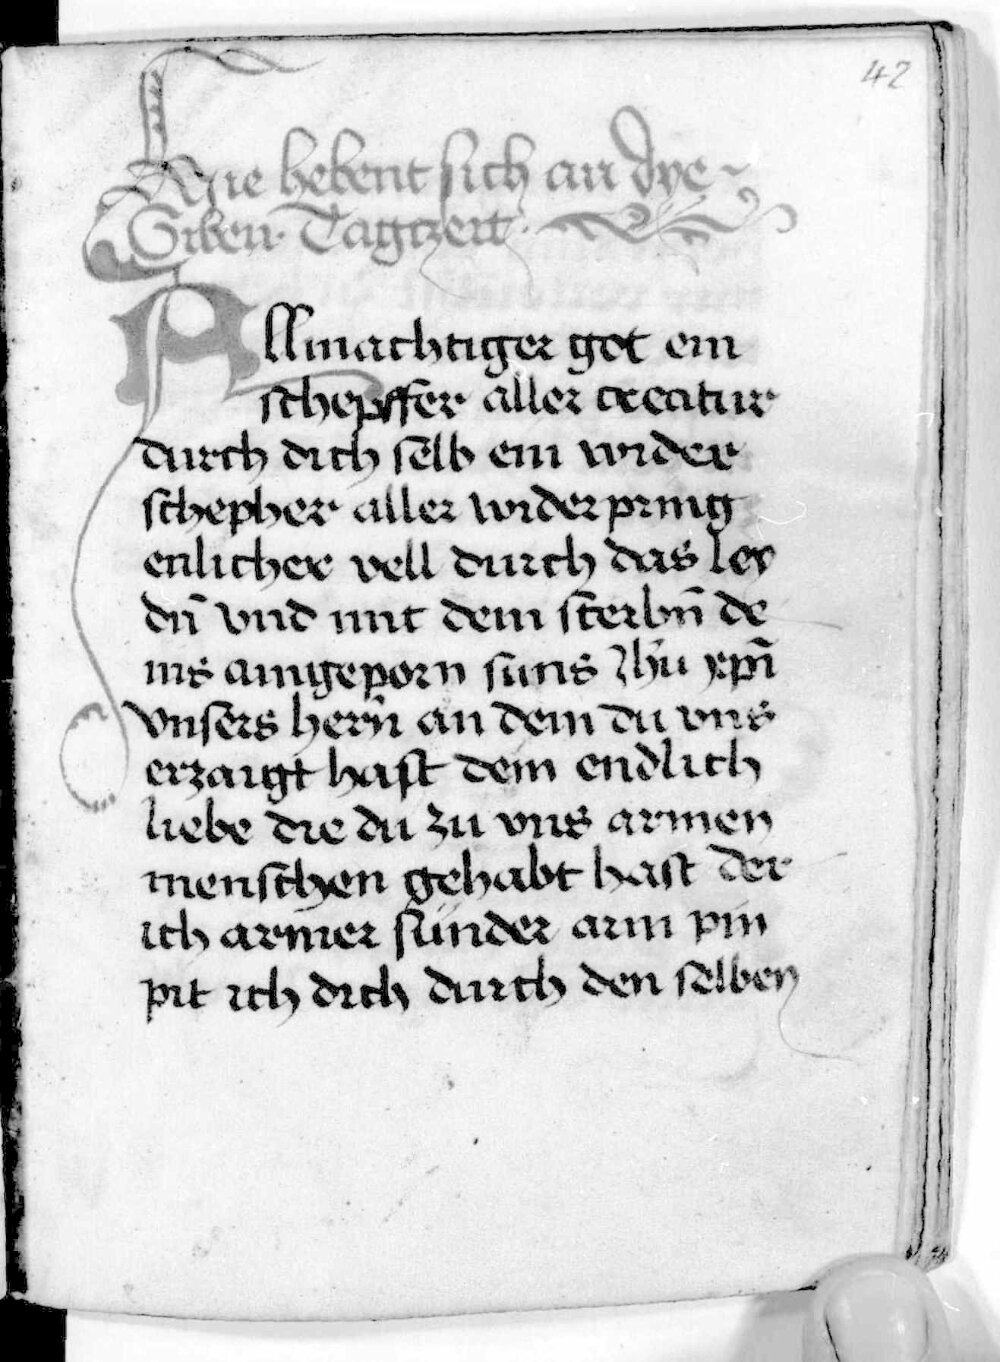 42
Hie hebent sich an dye
Siben Tagczeit
Allmachtiger got ein
schepffer aller creatur
durch dich selb ein wider
schepher aller widerpring
enlicher vell durch das ley
dn̄ vnd mit dem sterbn̄ de
ins aingeporn suns Jhū xp̄i
vnsers hern̄ an dem du vns
erzaigt hast dein endlich
liebe die du zu vns armen
menschen gehabt hast der
ich armer sünder arm pin
pit ich dich durch den selben